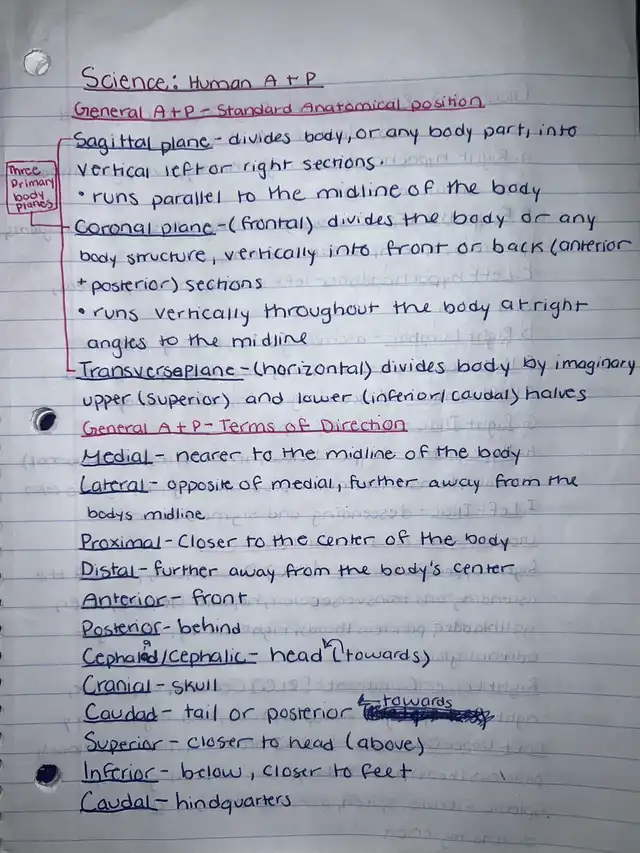 Science: Human A+P
General A+P - Standard Anatomical position
Sagittal plane - divides body, or any body part, into
vertical left or right sections.
• runs parallel to the midline of the body
Three
Primary
body
planes
Coronal plane - (frontal) divides the body or any
body structure, vertically into front or back (anterior
+ posterior) sections
• runs vertically throughout the body at right
angles to the midline
Transverse plane - (horizontal) divides body by imaginary
upper (superior) and lower (inferior/caudal) halves
General A+P - Terms of Direction
Medial - nearer to the midline of the body
Lateral - opposite of medial, further away from the
bodys midline
Proximal - closer to the center of the body
Distal - further away from the body's center
Anterior - front
Posterior - behind
Cephalad/Cephalic - head (towards)
Cranial - skull
Caudad - tail or posterior ← towards
Superior - closer to head (above)
Inferior - below, closer to feet
Caudal - hindquarters